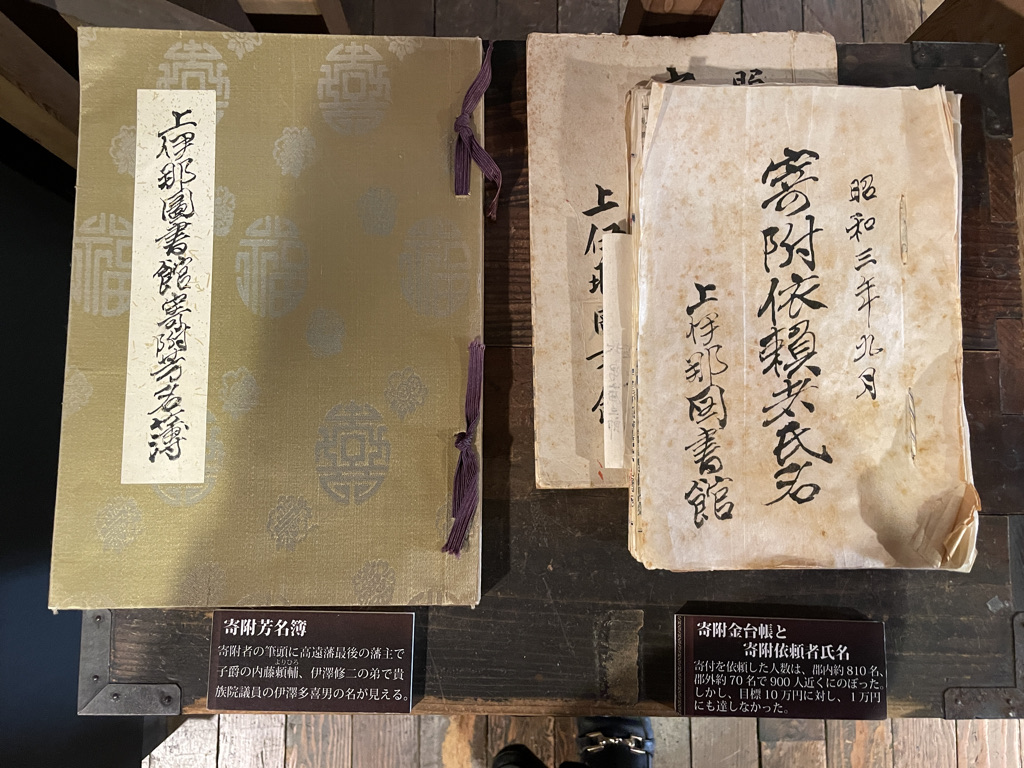 上伊那圖書館寄附芳名簿
昭和三年九月
寄附依頼者氏名
上伊那図書館
寄附芳名簿
寄附者の筆頭に高遠藩最後の藩主で
子爵の内藤頼輔、伊澤修二の弟で貴
よりひろ
族院議員の伊澤多喜男の名が見える。
寄附金台帳と
寄附依頼者氏名
寄付を依頼した人数は、郡内約810名、
郡外約70名で900人近くにのぼった。
しかし、目標10万円に対し、1万円
にも達しなかった。